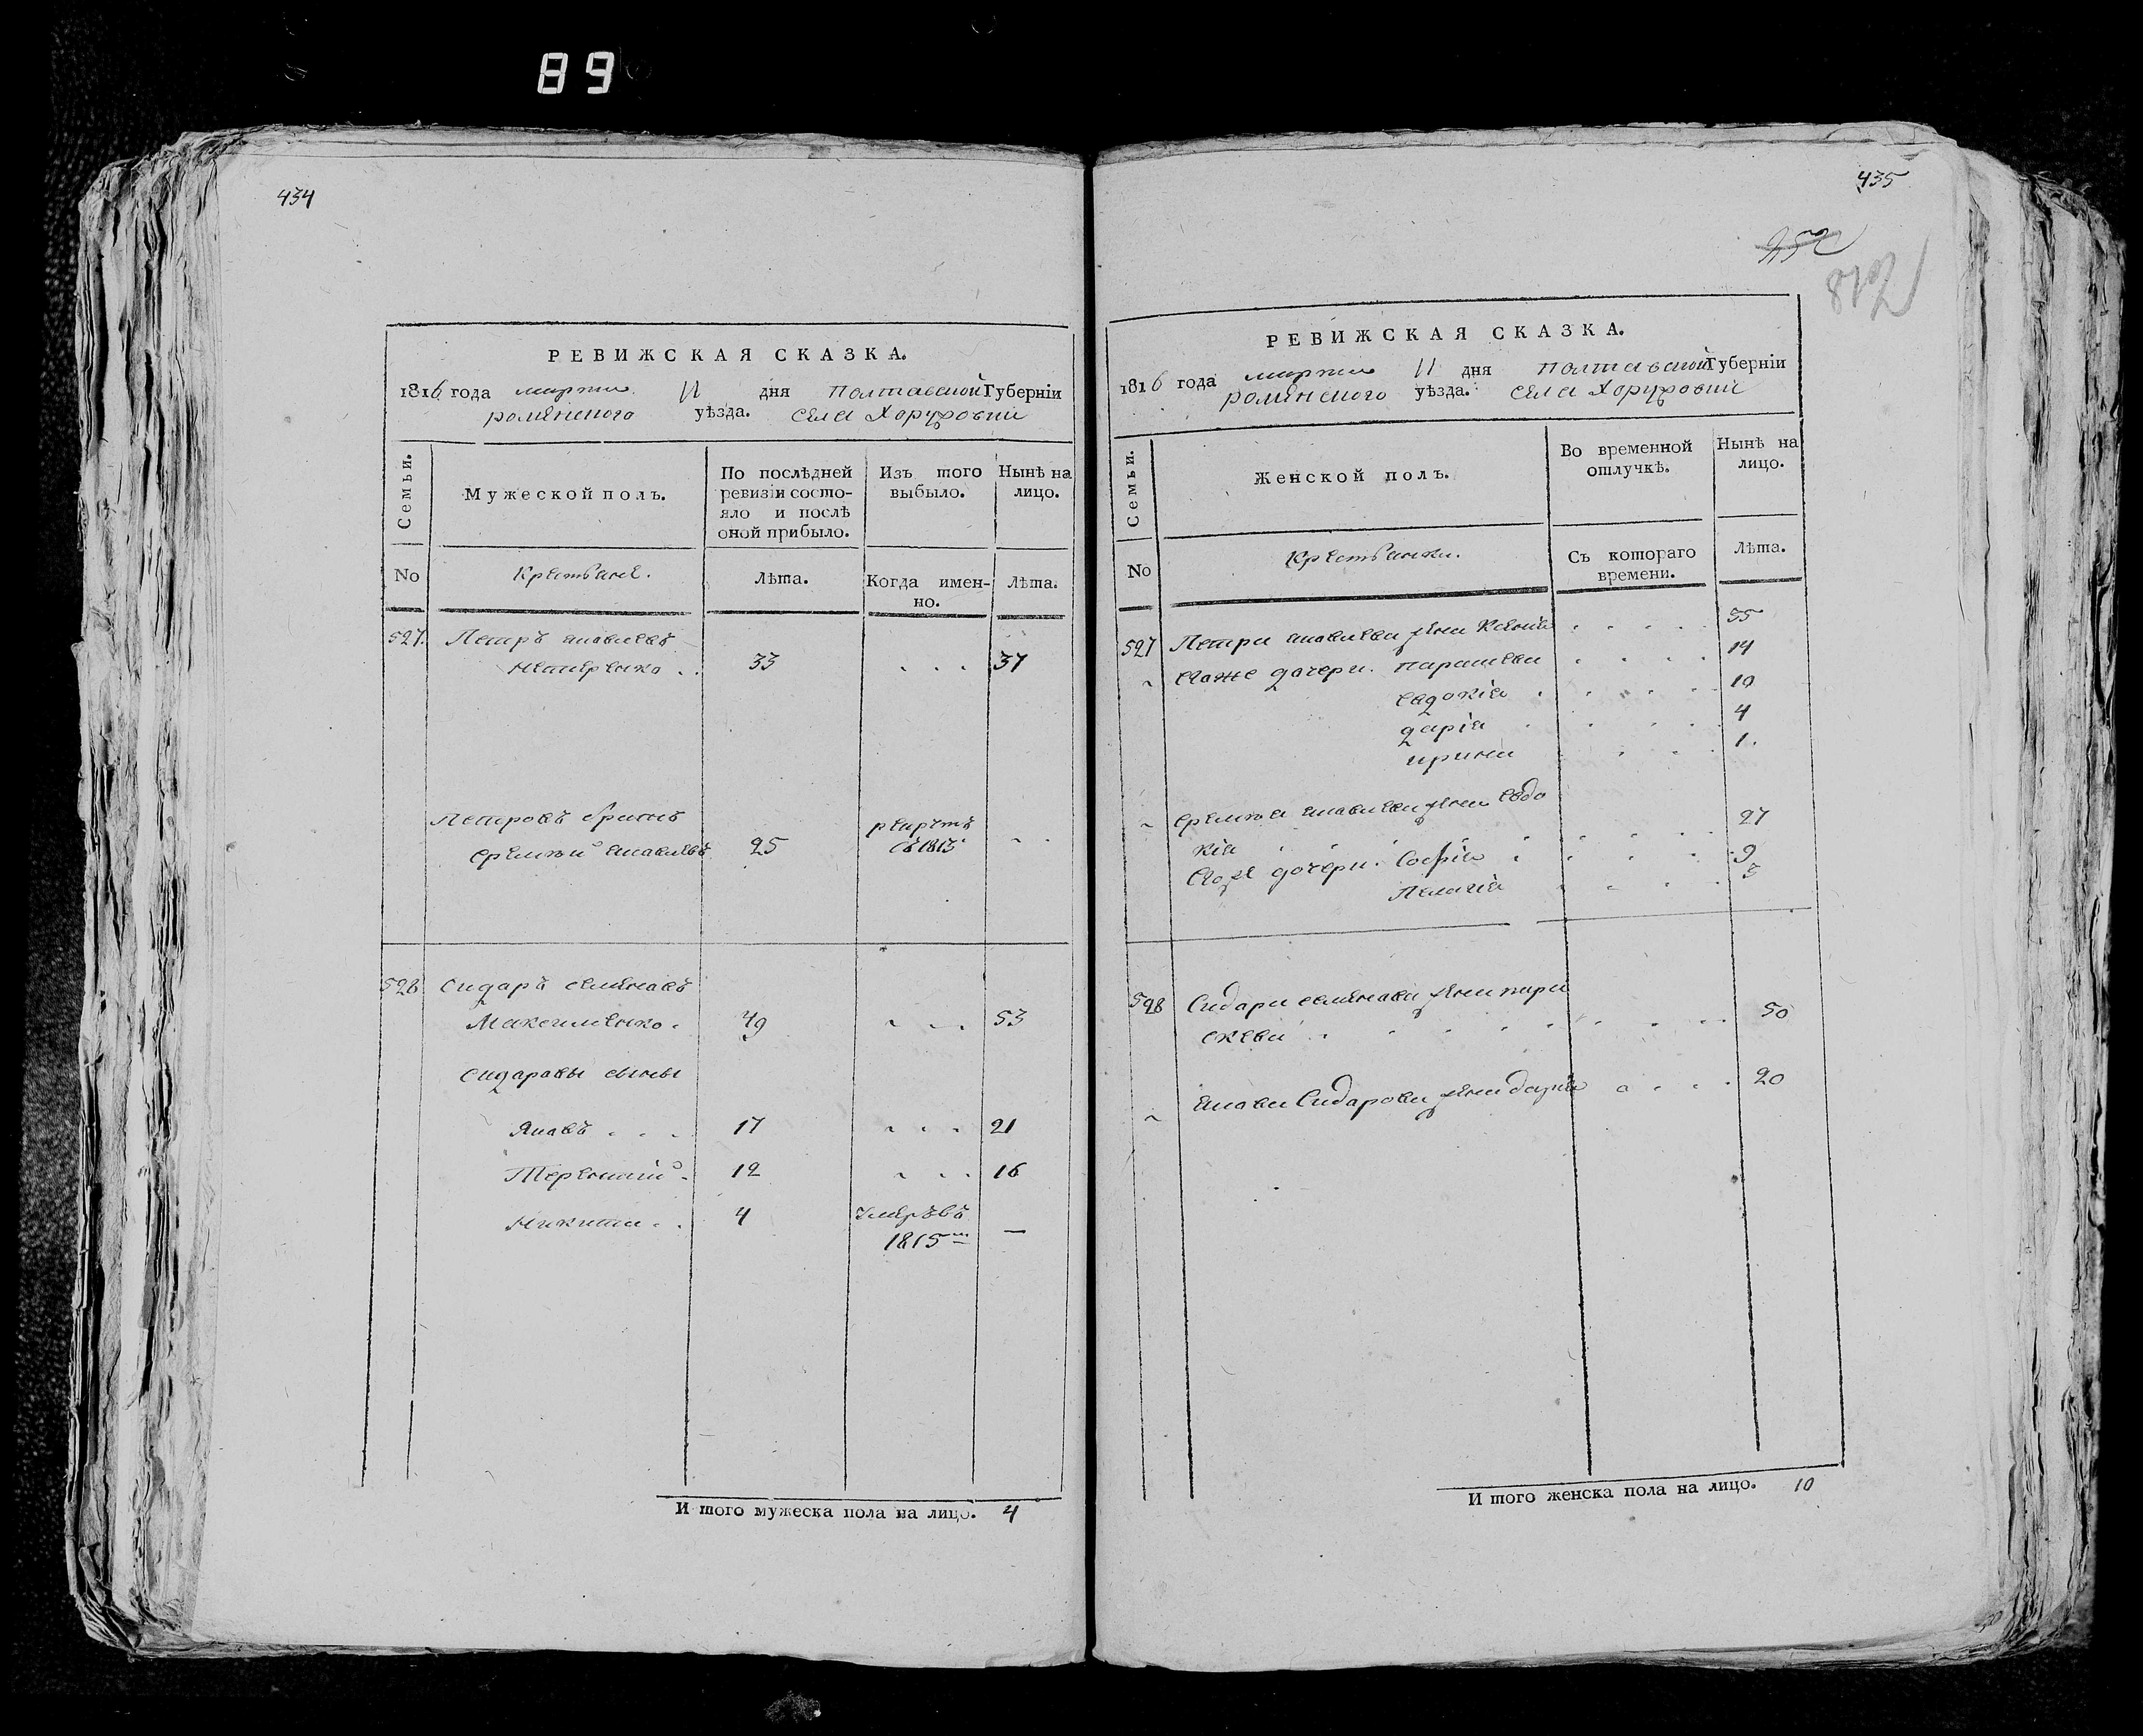 89
434
РЕВИЖСКАЯ СКАЗКА.
1816 года марта 11 дня Полтавской Губерніи
роменского уѣзда. села Хоружовки
Семьи.
Мужеской полъ.
По послѣдней ревизіи состояло и послѣ оной прибыло.
Изъ того выбыло.
Нынѣ на лицо.
No
Крестьяне.
Лѣта.
Когда именно.
Лѣта.
527. Петръ яковлевъ
33 . . . 37
Петровъ братъ рекрутъ
яковлевъ 25 въ 1813 - -
528 Сидаръ семеновъ
Максименко . 49 . . . 53
Сидаравы сыны
Яковъ . . . 17 . . . 21
Терентий . 12 . . . 16
Никита . . 4 умеръ въ
1815 —
И того мужеска пола на лицо. 4
435
РЕВИЖСКАЯ СКАЗКА.
1816 года марта 11 дня полтавской Губерніи
роменского уѣзда. села Хоружовки
Семьи.
Женской полъ.
Во временной отлучкѣ.
Нынѣ на лицо.
No
Крестьянки.
Съ котораго времени.
Лѣта.
527 Петра яковлева жена Ксенія . . . . 35
его же дочери. парасковья . . . . 14
евдокія . . . . 10
дарія . . . . 4
ирина . . . 1.
яковлева жена Евдо
кія . . . . 27
его же дочери. Софія . . . . 9
Пелагія . . . . 3
528 Сидара семенова жена пара
скева . . . . . . . . 50
якова Сидарова жена дарія . . . 20
И того женска пола на лицо. 10